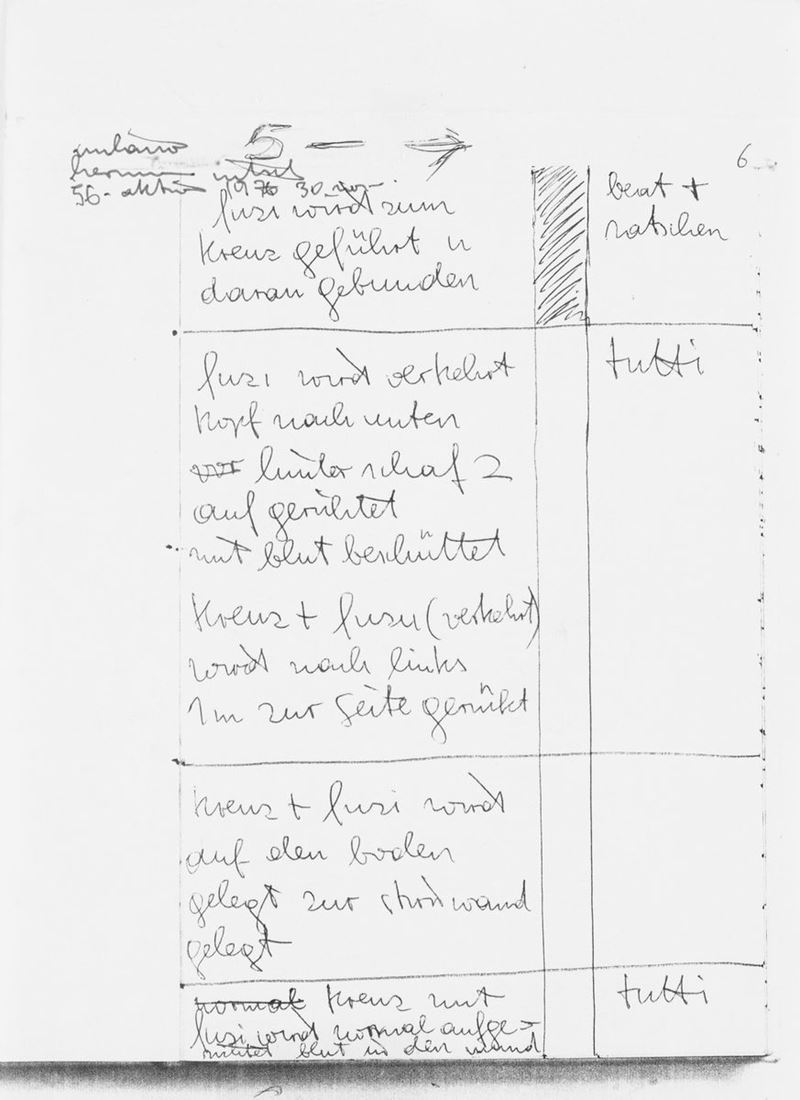 5 →
6
milano
56. aktion 1976 30. nov.
susi wird zum
kreuz geführt u
daran gebunden
beat +
ratschen
susi wird verkehrt
kopf nach unten
vor hinter schaf 2
auf gerichtet
mit blut beschüttet
tutti
kreuz + susi (verkehrt)
wird nach links
1m zur seite gerückt
kreuz + susi wird
auf den boden
gelegt zur wand
gelegt
normal kreuz mit
susi wird normal aufge=
richtet blut in den mund
tutti